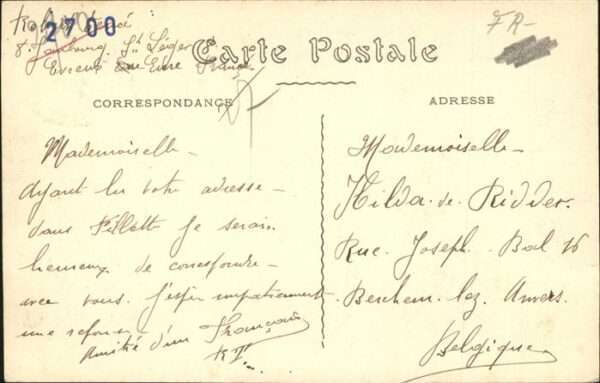 2700
FR-
Faubourg St Léger
Evreux Eure France
Carte Postale
CORRESPONDANCE
ADRESSE
Mademoiselle -
Ayant lu votre adresse -
dans Fillette je serais
heureux de correspondre -
avec vous. J'espère impatiemment
une réponse
Amitié d'un Français
Mademoiselle -
Hilda de Ridder.
Rue Joseph Bal 16
Berchem lez Anvers.
Belgique